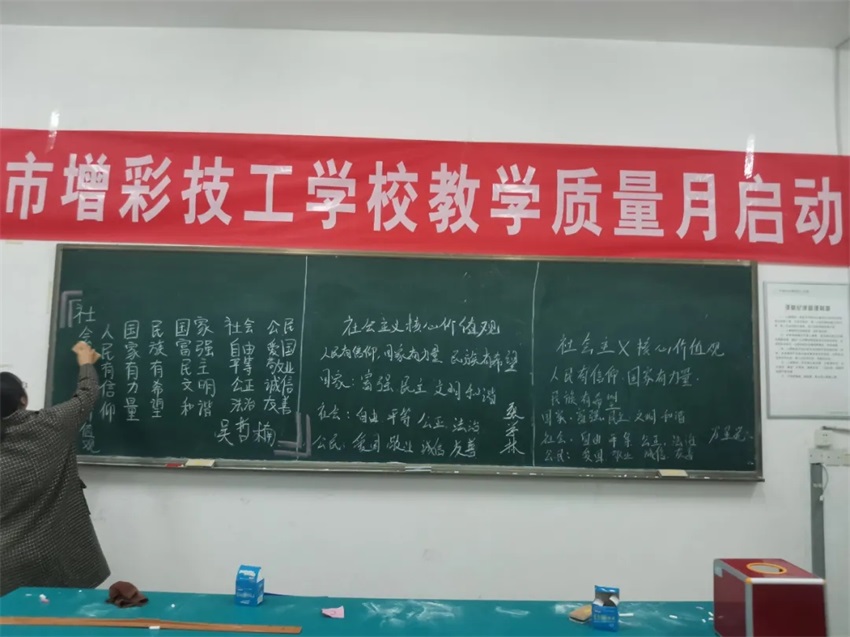 市增彩技工学校教学质量月启动
社会
人民有信仰
国家有力量
民族有希望
国家
富强
民主
文明
和谐
社会
自由
平等
公正
法治
公民
爱国
敬业
诚信
友善
吴哲楠
社会主义核心价值观
人民有信仰 国家有力量 民族有希望
国家：富强 民主 文明 和谐
社会：自由 平等 公正 法治
公民：爱国 敬业 诚信 友善
社会主义核心价值观
人民有信仰 国家有力量
民族有希望
国家：富强 民主 文明 和谐
社会：自由 平等 公正 法治
公民：爱国 敬业 诚信 友善